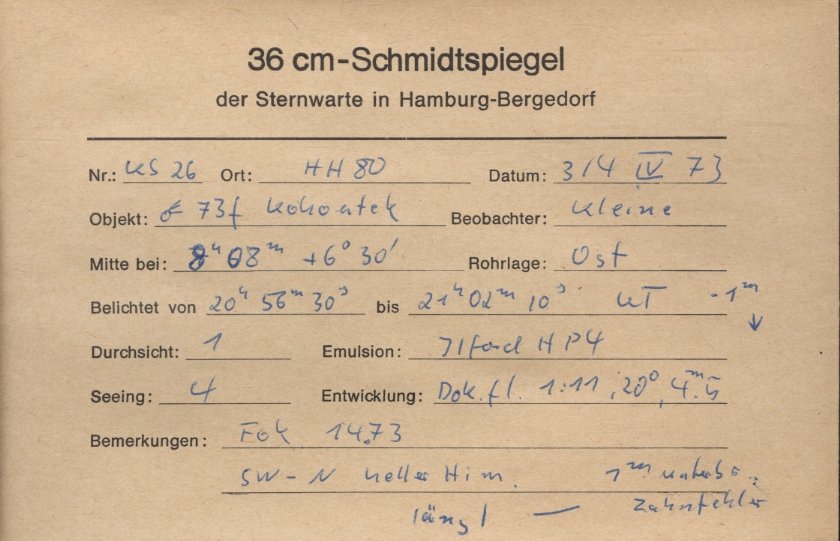 36 cm-Schmidtspiegel
der Sternwarte in Hamburg-Bergedorf
Nr.: KS 26 Ort: HH 80 Datum: 3/4 IV 73
Objekt: ☄ 73f Kohoutek Beobachter: Kleine
Mitte bei: 8ʰ 08ᵐ +6° 30' Rohrlage: Ost
Belichtet von 20ʰ 56ᵐ 30ˢ bis 21ʰ 02ᵐ 10ˢ UT -1ᵐ
↓
Durchsicht: 1 Emulsion: Ilford HP4
Seeing: 4 Entwicklung: Dok.fl. 1:11, 20°, 4.ᵐ5
Bemerkungen: Fok 14.73
SW-N heller Him. 1ᵐ unterbr.
längl — Zahnfehler